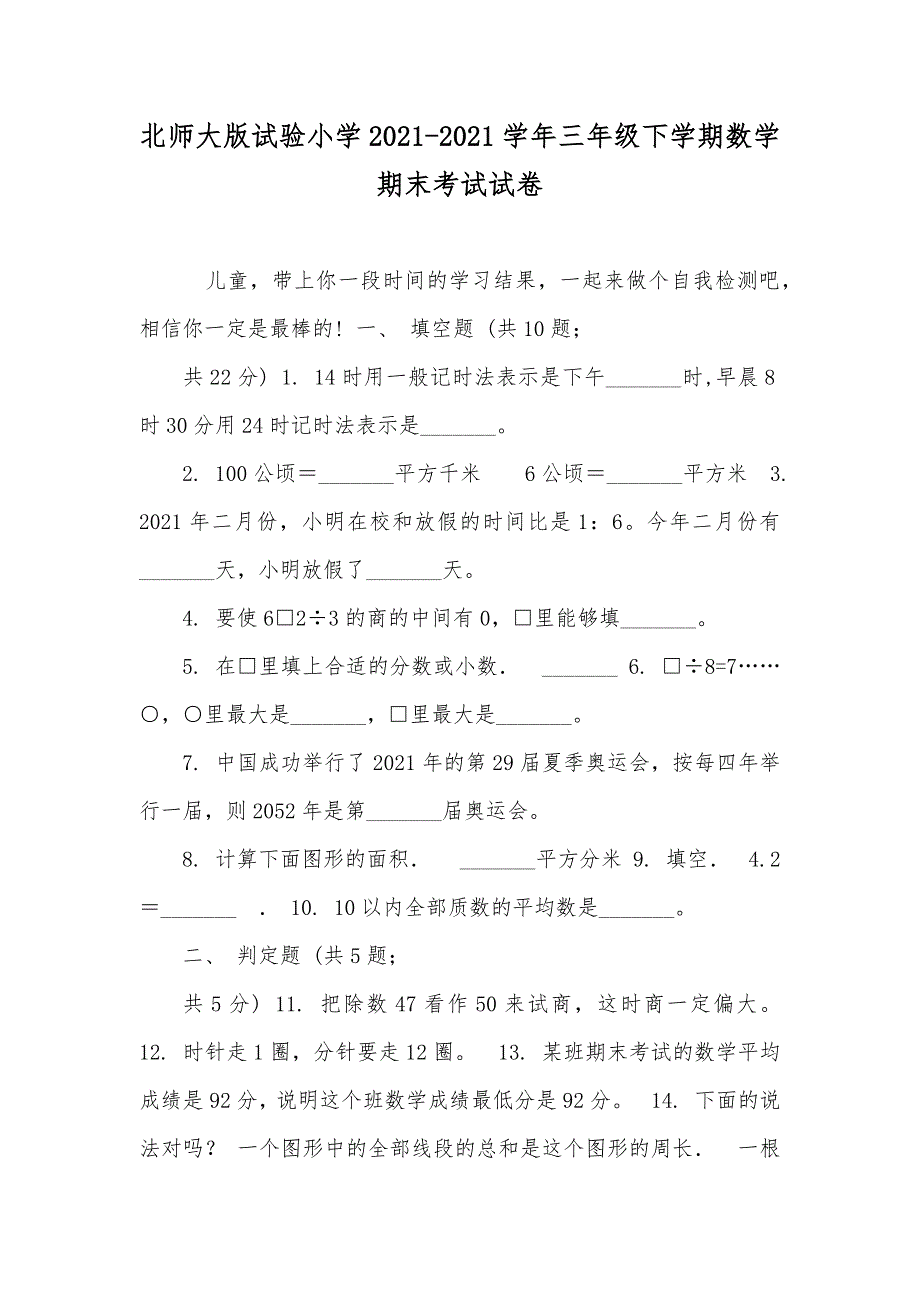 北师大版试验小学2021-2021学年三年级下学期数学
期末考试试卷
儿童，带上你一段时间的学习结果，一起来做个自我检测吧，
相信你一定是最棒的! 一、 填空题 (共10题；
共22分) 1. 14时用一般记时法表示是下午_______时,早晨8
时30分用24时记时法表示是_______。
2. 100公顷＝_______平方千米 6公顷＝_______平方米 3.
2021年二月份，小明在校和放假的时间比是1：6。今年二月份有
_______天，小明放假了_______天。
4. 要使6□2÷3的商的中间有0，□里能够填_______。
5. 在□里填上合适的分数或小数． _______ 6. □÷8=7……
○，○里最大是_______，□里最大是_______。
7. 中国成功举行了2021年的第29届夏季奥运会，按每四年举
行一届，则2052年是第_______届奥运会。
8. 计算下面图形的面积． _______平方分米 9. 填空． 4.2
＝_______ ． 10. 10以内全部质数的平均数是_______。
二、 判定题 (共5题；
共5分) 11. 把除数47看作50来试商，这时商一定偏大。
12. 时针走1圈，分针要走12圈。 13. 某班期末考试的数学平均
成绩是92分，说明这个班数学成绩最低分是92分。 14. 下面的说
法对吗？ 一个图形中的全部线段的总和是这个图形的周长． 一根